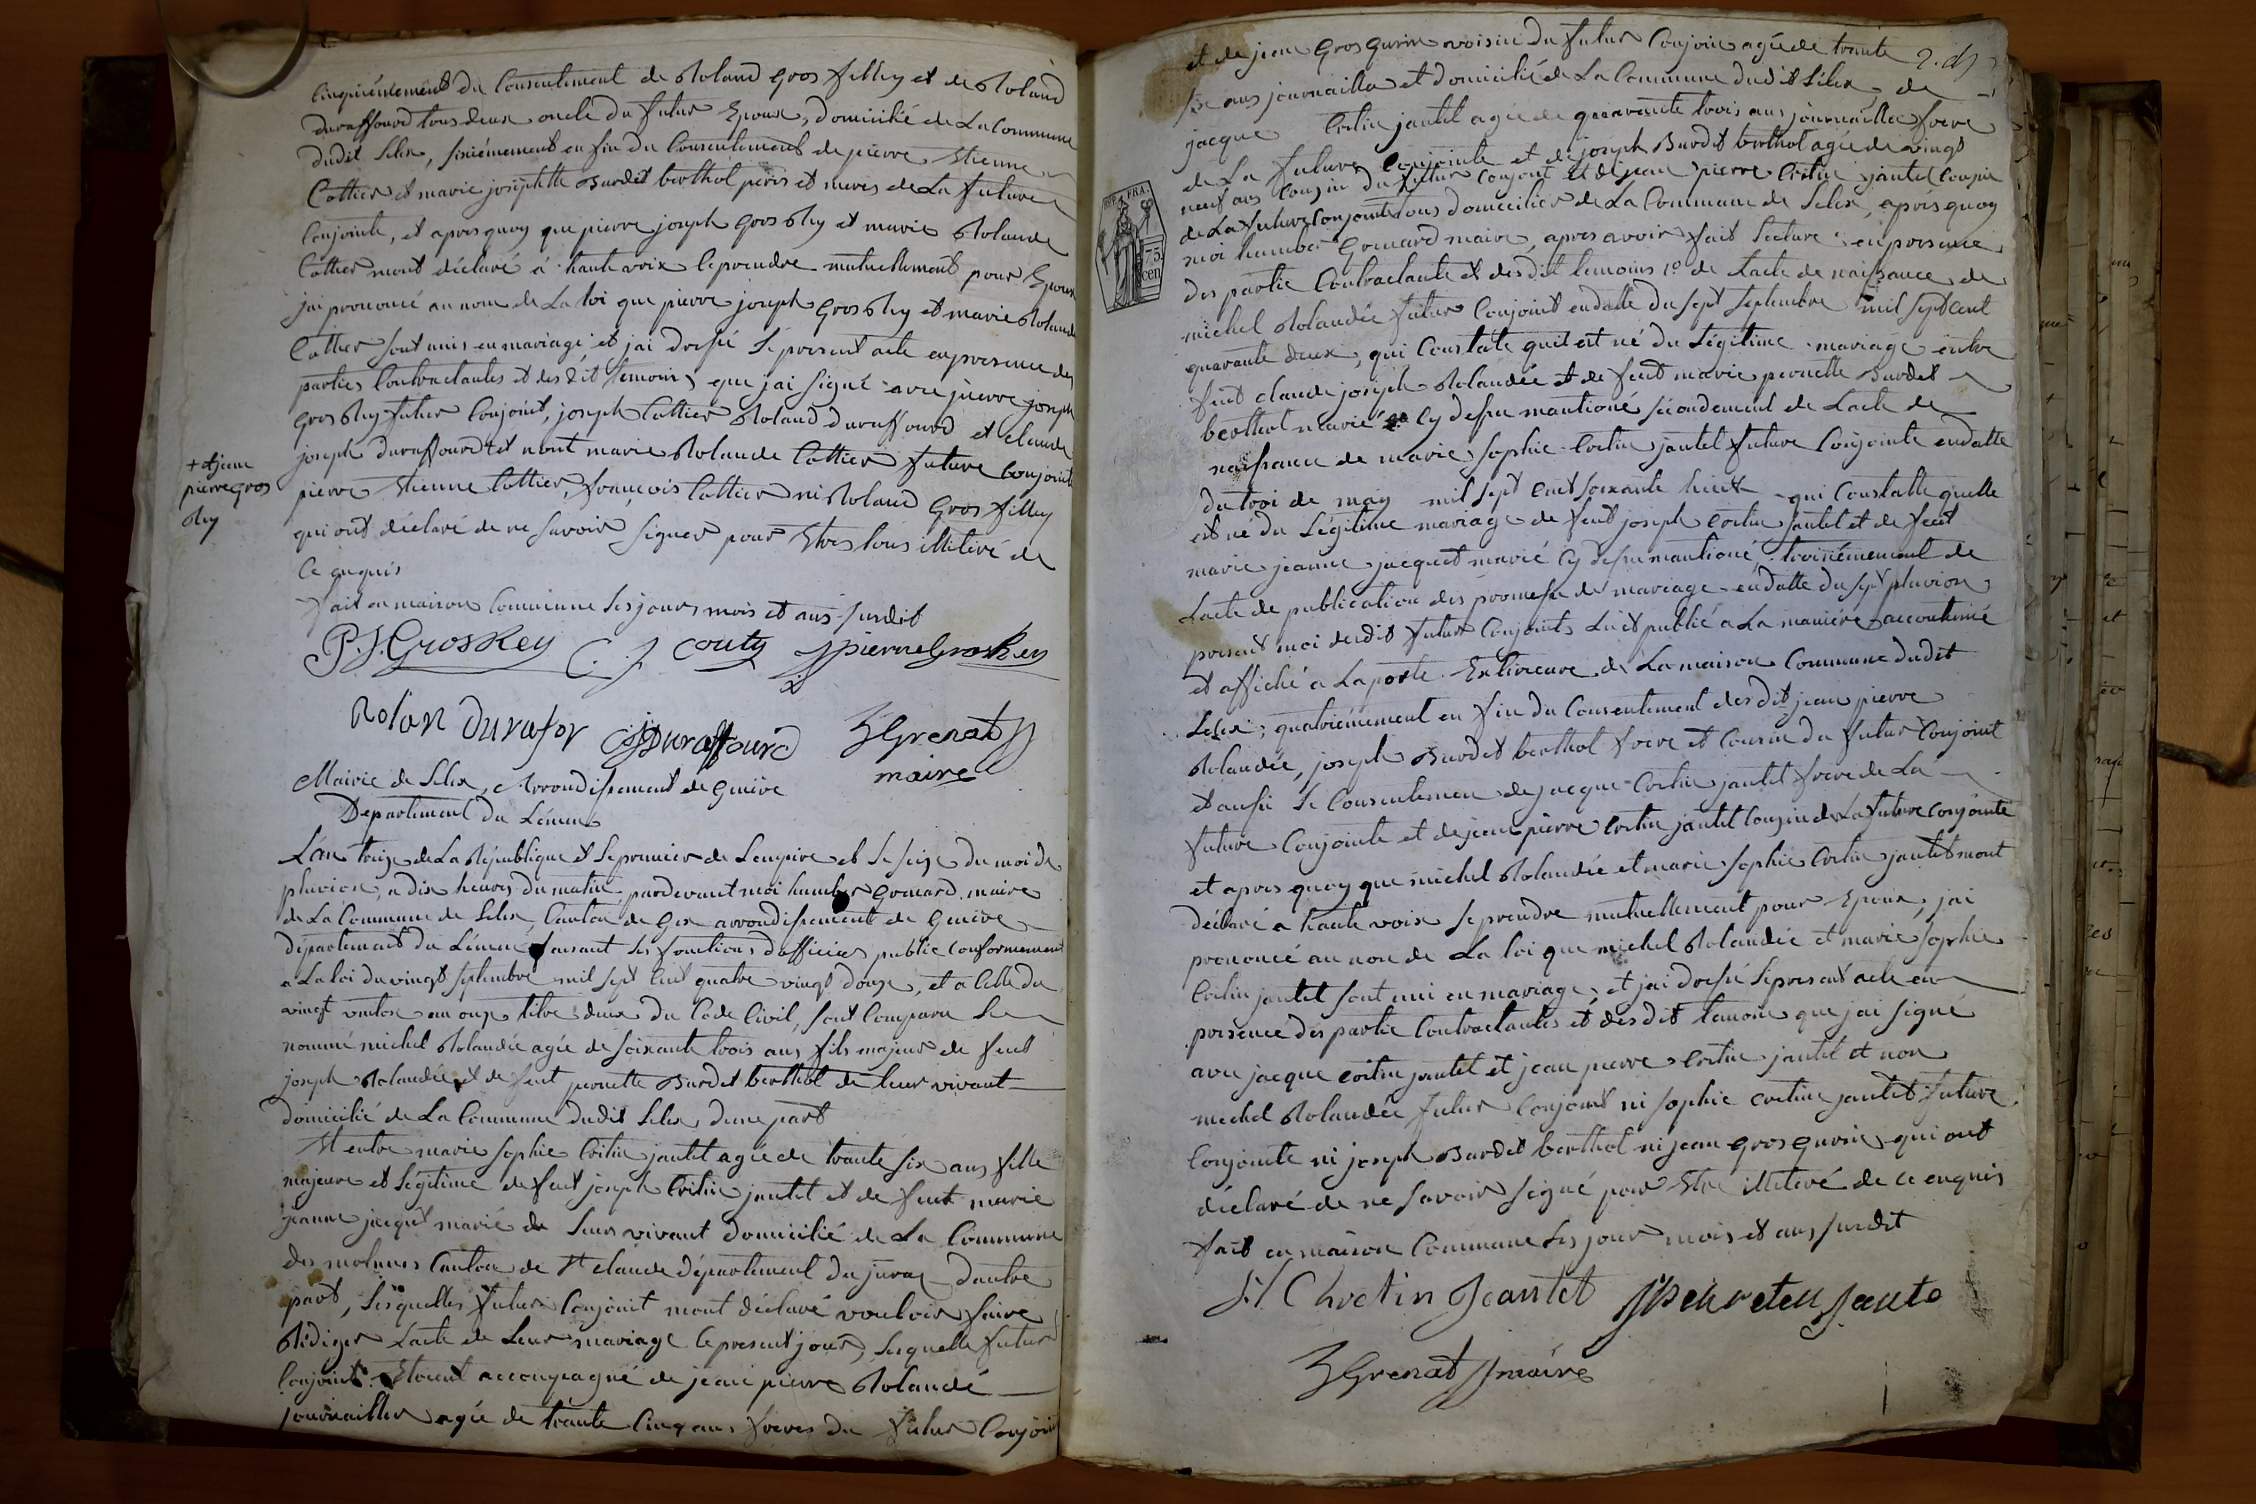 cinquièmement du Consentement de Roland Gros filley et de Roland
duraffourd tous deux oncle du futur Epoux, domicilié de La Commune
dudit Lelex, sixièmement en fin du Consentement de pierre Etienne
Cottier et marie josephtte Burdet berthol peres et meres de La future
Conjointe, et apres quoy que pierre joseph Gros Rey et marie Rolande
Cottier mont déclaré à haute voix se prendre mutuellement pour Epoux
jai prononcé au nom de La loi que pierre joseph Gros Rey et marie Rolande
Cottier sont unis en mariage et jai dressé le present acte en presence des
parties Contractantes et des dit temoins que jai signé avec pierre joseph
gros Rey futur Conjoint, joseph Cottier Roland duraffourd et claude
joseph duraffourd + et nont marie Rolande Cottier future Conjointe
pierre Etienne Cottier, françois Cottier ni Roland Gros filley
qui ont déclaré de ne savoir signer pour Etres tous illitéré de
Ce enquis
+ et jean
pierre gros
Rey
fait en maison Commune les jours mois et ans susdit
P. J. GrosRey C. J. couty jpierre GrosRey
Rolan Durafor CJDuraffourd hGrenard
maire
Mairie de Lelex, Arrondissement de Genève
Departement du Léman
L'an treize de La République et le premier de Lempire et le seize du moi de
pluviose, a dix heures du matin pardevant moi humber Grenard maire
de La Commune de Lelex, Canton de Gex arrondissement de Genève
département du Léman, faisant les fonctions dofficier public conformement
a La loi du vingt septembre mil sept cent quatre vingt douze, et a Celle du
vingt ventose an onze titre deux du Code Civil, sont Comparu Le
nommé michel Rolandée agée de soixante trois ans fils majeur de feut
joseph Rolandée et de feut pernette Burdet berthol de leur vivant
domicilié de La Commune dudit Lelex, dune part
Et entre marie sophie Crétin jantet agée de trante six ans fille
majeure et Légitime de feut joseph Crétin jantet et de feut marie
jeanne jacquet marié de Leurs vivant domicilié de La Commune
des molunes Canton de St claude département du jura dautre
part, lesquelles futurs Conjoint mont déclaré vouloir faire
Rédiger Lacte de Leur mariage Ce present jour, lesquelle futur
Conjoint Etoient accompagné de jean pierre Rolandé
journaillier agée de trante Cinq ans freres du futur Conjoint
et de jean Gros Gurin voisin du futur Conjoin agée de trante
six ans journaillier et domicilié de La Commune dudit Lelex, de
jacque Crétin jantet agée de quarante trois ans journaillier frere
de La future Conjointe et de joseph Burdet berthol agée de vingt
neuf ans Cousin du futur Conjoint et de jean pierre Crétin jantet Cousin
de La future Conjointe tous domiciliés de La Commune de Lelex, après quoy
moi humber Grenard maire, apres avoir fait Lecture en presence
des partie Contractante et des dit temoins 1o de Lacte de naissance de
michel Rolandée futur Conjoint en datte du sept septembre mil sept cent
quarante deux, qui Constate quil est né du Légitime mariage entre
feut claude joseph Rolandée et de feut marie pernette Burdet
berthol marié Cy dessu mantioné sécondement de Lacte de
naissance de marie sophie Crétin jantet future Conjointe en datte
du troi de may mil sept cent soixante huit qui Constatte quelle
est né du Légitime mariage de feut joseph Crétin jantet et de feut
marie jeanne jacquet marié Cy dessu mantioné, troisiémement de
Lacte de publication des promesse de mariage en datte du sept pluviose
present moi desdit futur Conjoints Lu et publié a La manière accoutumé
et affiché a La porte Extireure de La maison Commune dudit
Lelex, quatrièmement en fin du Consentement des dit jean pierre
Rolandée, joseph Burdet berthol frere et Cousin du futur Conjoint
et aussi le Consentement de jacque Crétin jantet frere de La
future Conjointe et de jean pierre Crétin jantet Cousin de La future Conjointe
et apres quoy que michel Rolandée et marie sophie Crétin jantet mont
déclaré a haute voix se prendre mutuellement pour Epoux, jai
prononcé au non de La loi que michel Rolandée et marie sophie
Crétin jantet sont uni en mariage, et jai dressé le present acte en
presence des partie Contractantes et des dit temoins que jai signé
avec jacque crétin jantet et jean pierre Crétin jantet et non
michel Rolandée futur Conjoint ni sophie cretin jantet future
Conjointe ni joseph Burdet berthol ni jean gros gurin qui ont
déclaré de ne savoir signé pour Etre illitéré de ce enquis
fait en maison Commune les jour mois et ans susdit
J. Chretin Jeantet
hGrenard maire
FRA.
75
cen